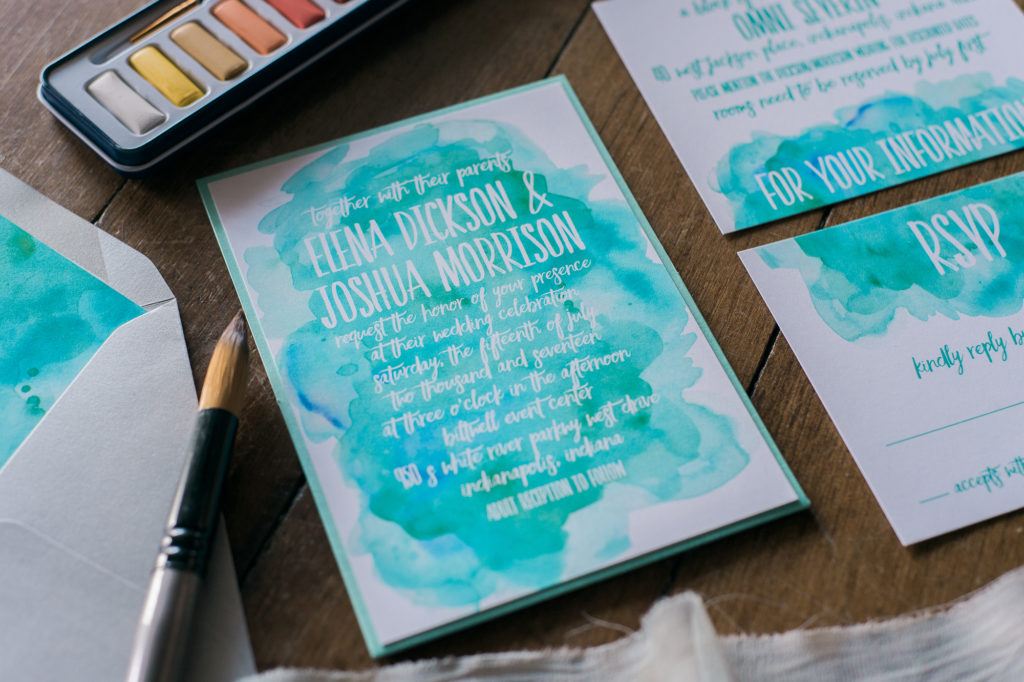 together with their parents
ELENA DICKSON &
JOSHUA MORRISON
request the honor of your presence
at their wedding celebration
saturday, the fifteenth of july
two thousand and seventeen
at three o'clock in the afternoon
biltwell event center
950 s white river parkway west drive
indianapolis, indiana
ADULT RECEPTION TO FOLLOW
OMNI SEVERIN
west jackson place, indianapolis, indiana
rooms need to be reserved by july first
FOR YOUR INFORMATION
RSVP
kindly reply
accepts